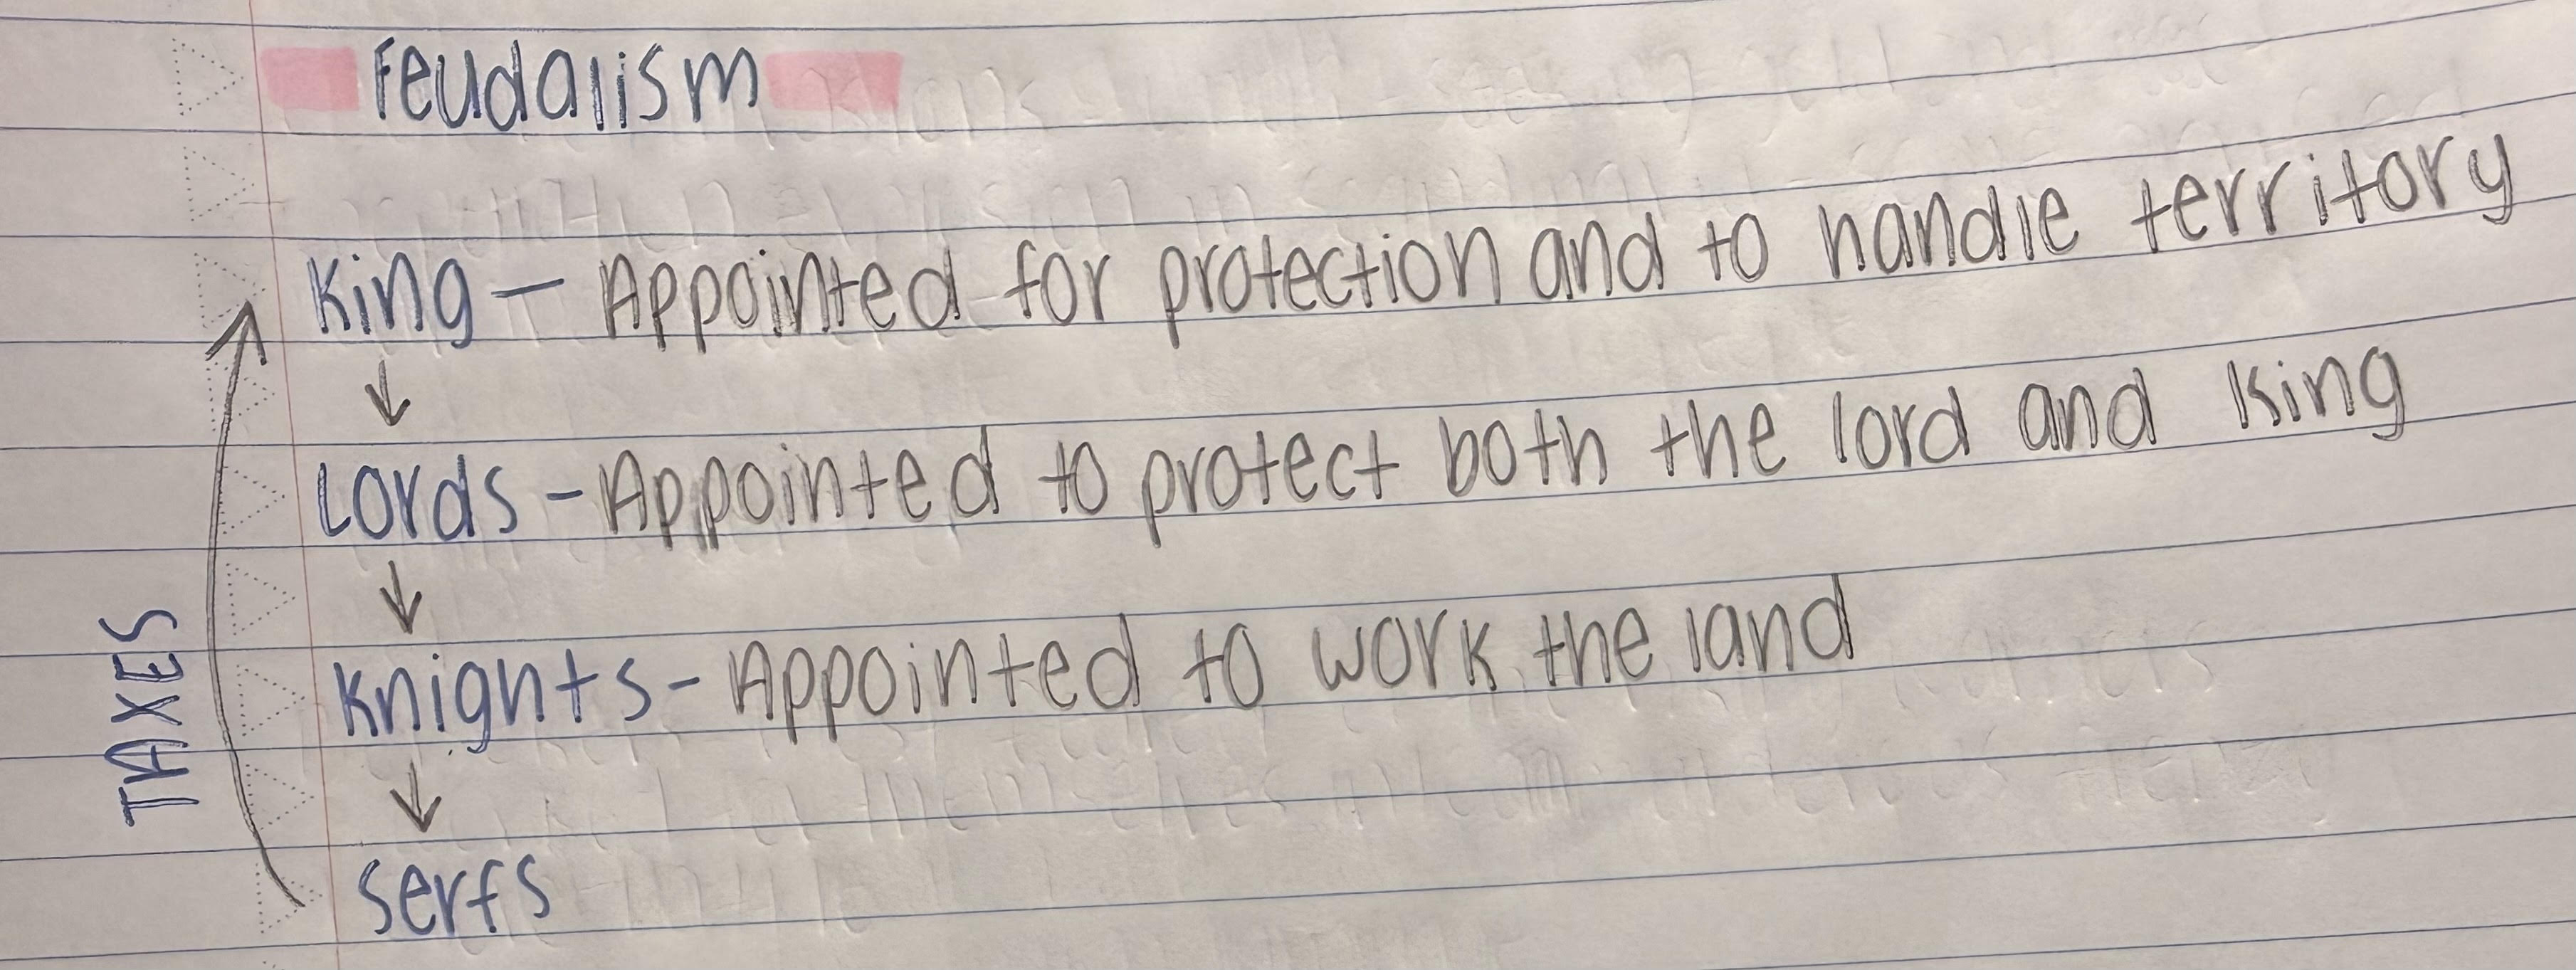 Feudalism
King – Appointed for protection and to handle territory
↓
Lords – Appointed to protect both the lord and king
↓
Knights – Appointed to work the land
↓
Serfs
TAXES